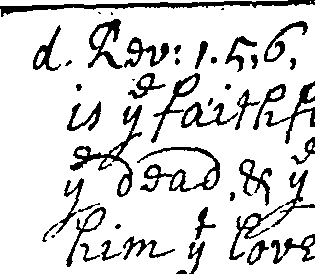 d. Rev: 1. 5, 6,
is yᵉ faithf
yᵉ dead, & yᵉ
him yᵗ love